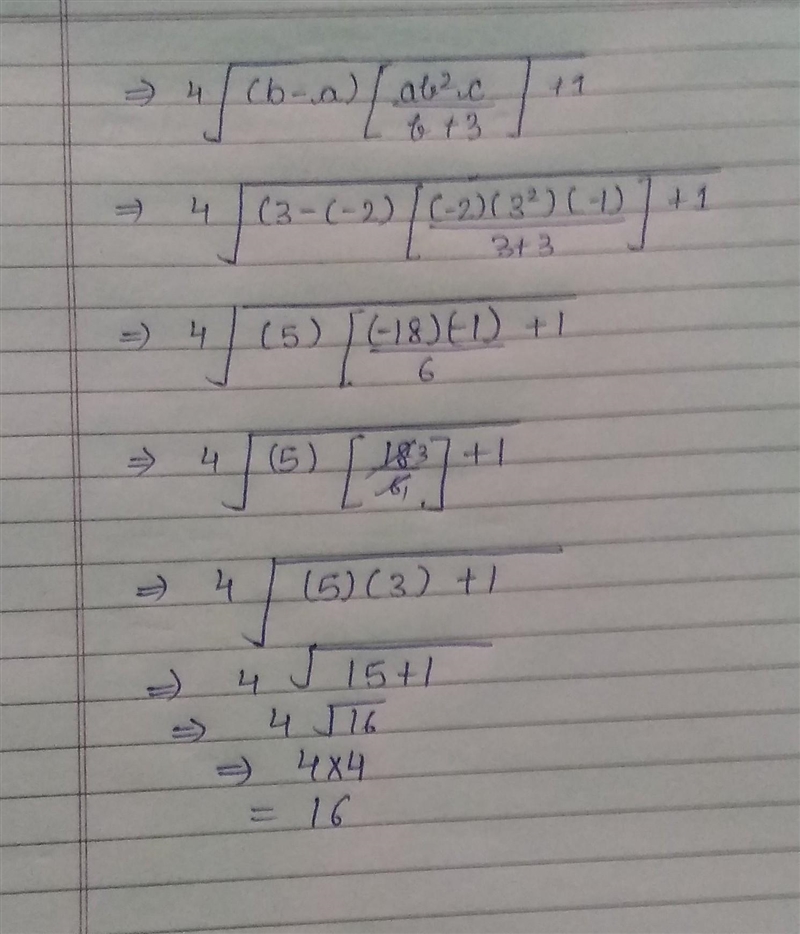 ⇒ 4√((b-a)[ab²c/(b+3)]+1)
⇒ 4√((3-(-2)[(-2)(3²)(-1)/(3+3)]+1)
⇒ 4√((5)[(-18)(-1)/6+1)
⇒ 4√((5)[18 3/6 1]+1)
⇒ 4√((5)(3)+1)
⇒ 4√(15+1)
⇒ 4√16
⇒ 4×4
= 16